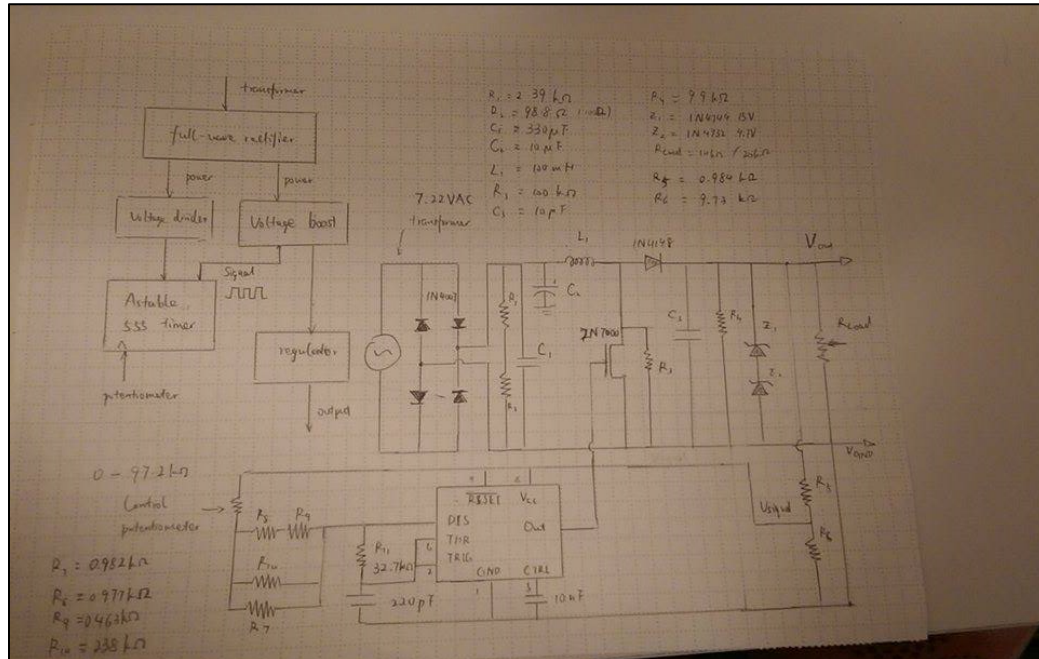 transformer
full-wave rectifier
power
power
Voltage divider
Voltage boost
Signal
Astable
555 timer
regulator
potentiometer
output
R₁ = 2.39 kΩ
R₂ = 98.8 Ω
C₁ = 330 µF
C₂ = 10 µF
L₁ = 100 mH
R₃ = 100 kΩ
C₃ = 10 µF
R₄ = 9.9 kΩ
Z₁ = 1N4744 15V
Z₂ = 1N4732 4.7V
RLoad = 10kΩ / 20kΩ
R5 = 0.984 kΩ
R6 = 9.73 kΩ
7.22VAC
transformer
1N4007
R₁
R₂
C₁
C₂
L₁
1N4148
2N7000
R₃
C₃
R₄
Z₁
RLoad
Vout
VGND
R5
R6
0 - 97.2 kΩ
Control
potentiometer
R8
R9
R10
R7
R11
32.7kΩ
220pF
RESET
Vcc
DIS
THR
TRIG
Out
GND
CTRL
6
2
1
10nF
R7 = 0.982 kΩ
R8 = 0.977 kΩ
R9 = 0.463 kΩ
R10 = 238 kΩ